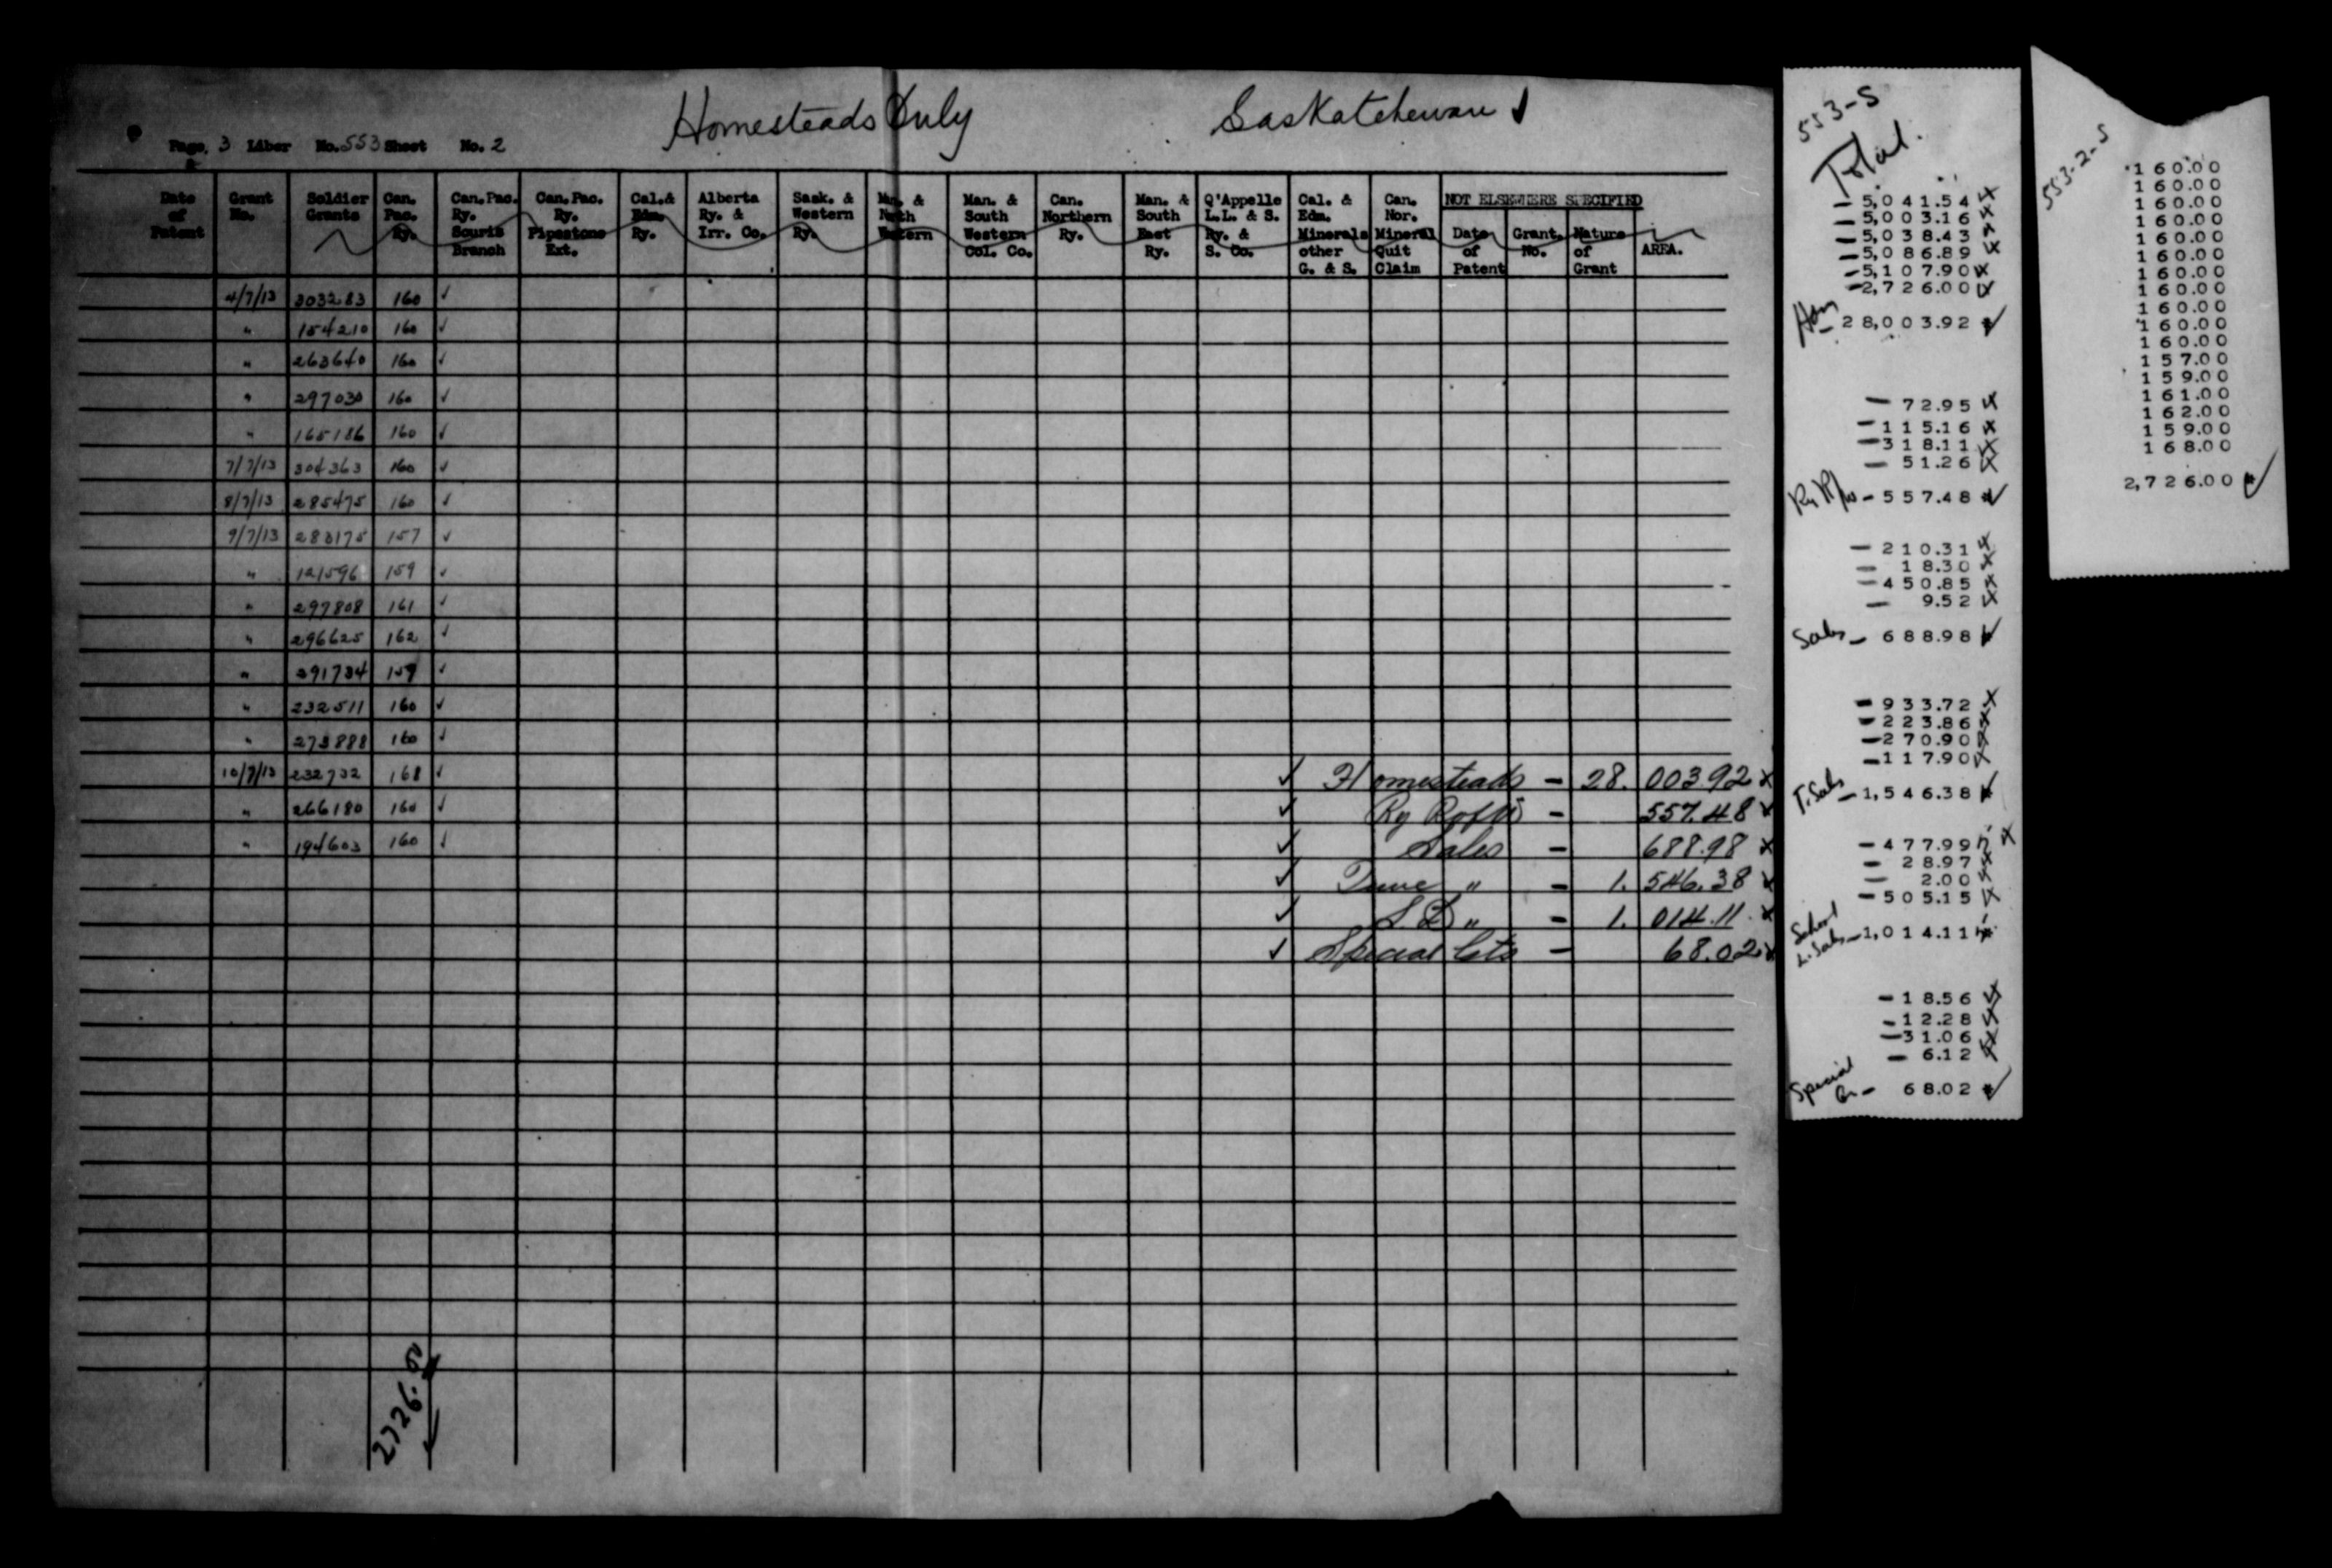 Homesteads Only Saskatchewan
Page 3 Liber No. 553 Sheet No. 2
&
Date of Patent | Grant No. | Soldier Grants | Can. Pac. Ry. | Can. Pac. Ry. Souris Branch | Can. Pac. Ry. Pipestone Ext. | Cal. & Edm. Ry. | Alberta Ry. & Irr. Co. | Sask. & Western Ry. | Man. & North Western | Man. & South Western Col. Co. | Can. Northern Ry. | Man. & South East Ry. | Q'Appelle L.L. & S. Ry. & S. Co. | Cal. & Edm. Minerals other G. & S. | Can. Nor. Mineral Quit Claim | NOT ELSEWHERE SPECIFIED | Date of Patent | Grant. No. | Nature of Grant | AREA.
4/7/13 303283 160 ✓
" 154210 160 ✓
" 263640 160 ✓
" 297030 160 ✓
" 165186 160 ✓
7/7/13 304363 160 ✓
8/7/13 285475 160 ✓
9/7/13 283175 157 ✓
" 121596 159 ✓
" 297808 161 ✓
" 296625 162 ✓
" 291734 159 ✓
" 232511 160 ✓
" 273888 160 ✓
10/7/13 232732 168 ✓ ✓ Homesteads - 28.003.92
" 266180 160 ✓ ✓ Ry R of W - 557.48
" 194603 160 ✓ ✓ Sales - 688.98
✓ " - 1.546.38
✓ S.L. " - 1.014.11
✓ Special Gts - 68.02
2726.00 ✓
553-S
Total.
5,041.54
5,003.16
5,038.43
5,086.89
5,107.90
2,726.00
Hom - 28,003.92 ✓
72.95
115.16
318.11
51.26
Ry R/w - 557.48 ✓
210.31
18.30
450.85
9.52
Sales - 688.98 ✓
933.72
223.86
270.90
117.90
T. Sales - 1,546.38 ✓
477.99
28.97
2.00
505.15
School
L. Sales - 1,014.11
18.56
12.28
31.06
6.12
Special
Gr - 68.02 ✓
553-2-S
160.00
160.00
160.00
160.00
160.00
160.00
160.00
160.00
160.00
160.00
160.00
157.00
159.00
161.00
162.00
159.00
168.00
2,726.00 ✓